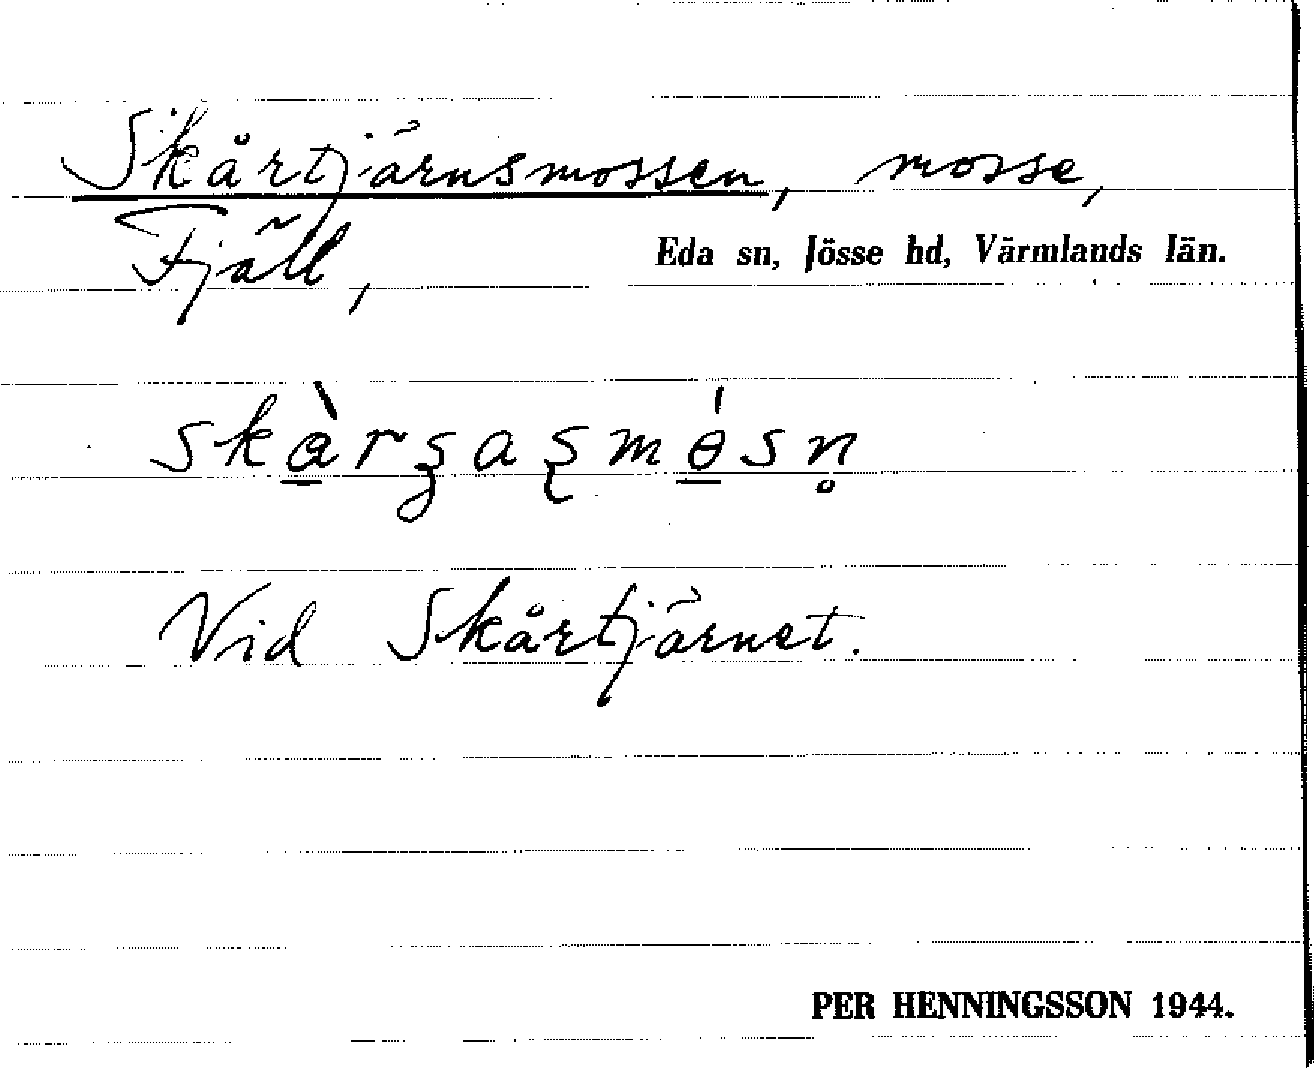 Skårtjärnsmossen, mosse,
Fjäll,
Eda sn, Jösse hd, Värmlands län.
skàrʒaʂmɵ́sn̥
Vid Skårtjärnet.
PER HENNINGSSON 1944.